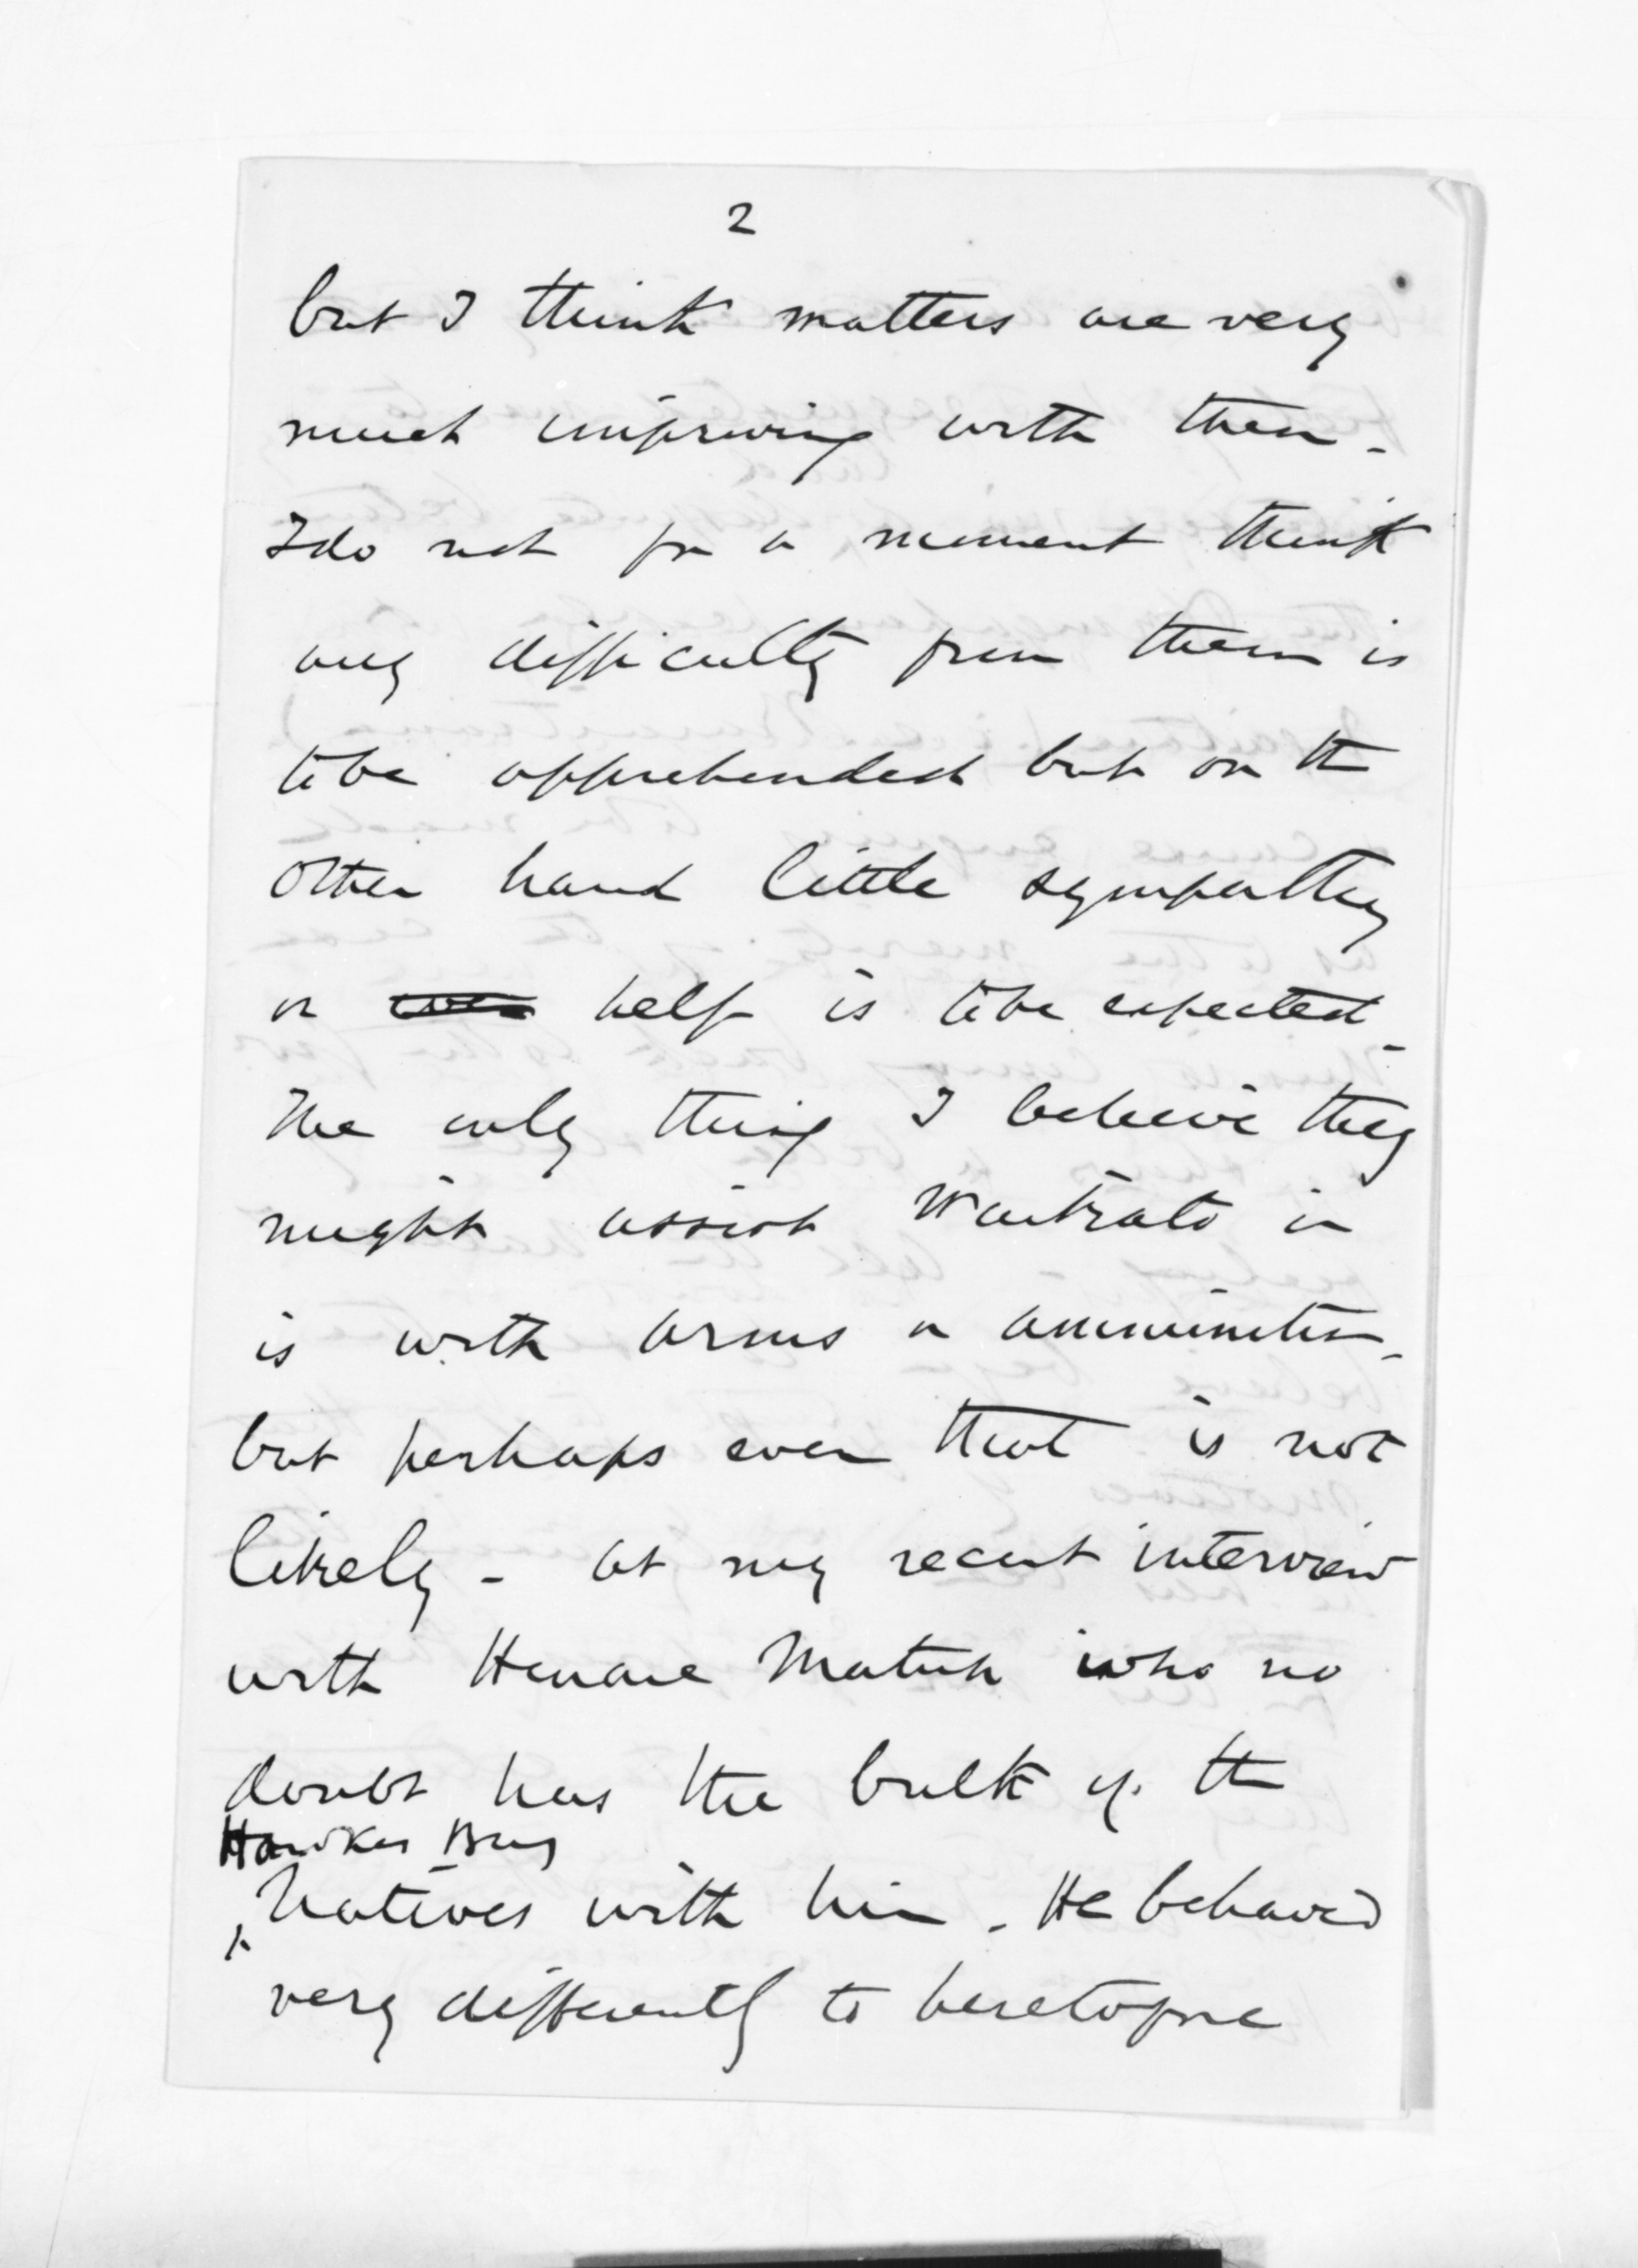 2
but I think matters are very
much improving with them -
I do not for a moment think
any difficulty from them is
to be apprehended but on the
other hand little sympathy
or even help is to be expected -
The only thing I believe they
might assist Waikato in
is with arms or ammunition -
but perhaps even that is not
likely - at my recent interview
with Henare Matua who no
doubt has the bulk of the
Hawkes Bay
Natives with him - He behaved
very differently to heretofore